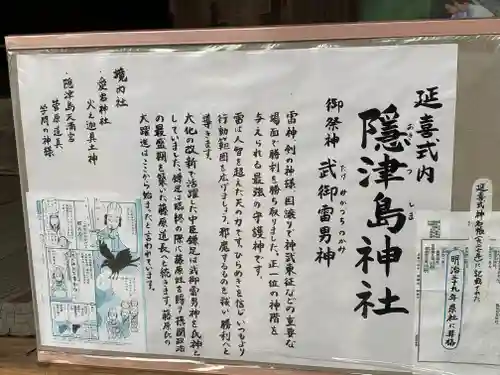 延喜式内
隠津島神社
おきつしま
御祭神 武御雷男神
たけみかつちのかみ
雷神剣の神様、国譲りで神武東征などの重要な
場面で勝利を勝ち取りました。正一位の神階を
与えられる最強の守護神です。
雷は人智を超えた天の力です。ひらめきを信じいつもより
行動範囲を広げましょう。邪魔するものを祓い勝利へと
導きます。
大化の改新で活躍した中臣鎌足は武御雷男神を氏神と
していました。鎌足は臨終の際に藤原姓を賜り摂関政治
の最盛期を築いた藤原道長へと続きます。藤原氏の
大躍進はここから始まったと言われています。
境内社
・愛宕神社
火之迦具土神
・隠津島天満宮
菅原道真
学問の神様
延喜式神名帳
に記載された
明治三十九年県社に昇格